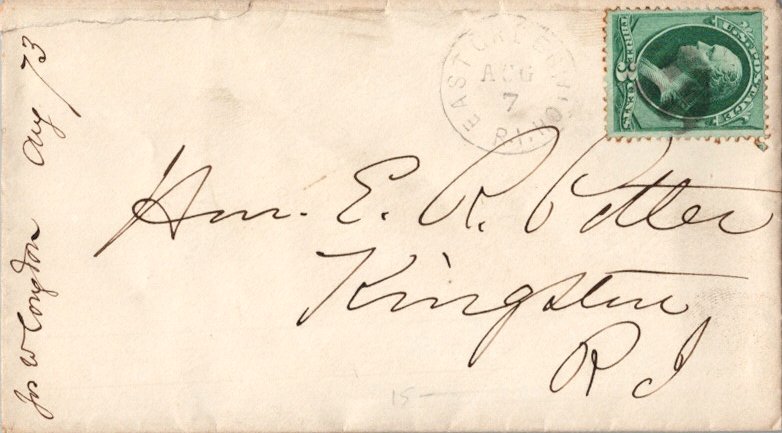 EAST GREENWICH
AUG
7
R.I.
U.S. POSTAGE
THREE 3 CENTS
Hon. E. R. Potter
Kingston
R I
Jos W Congdon Aug / 73
15-